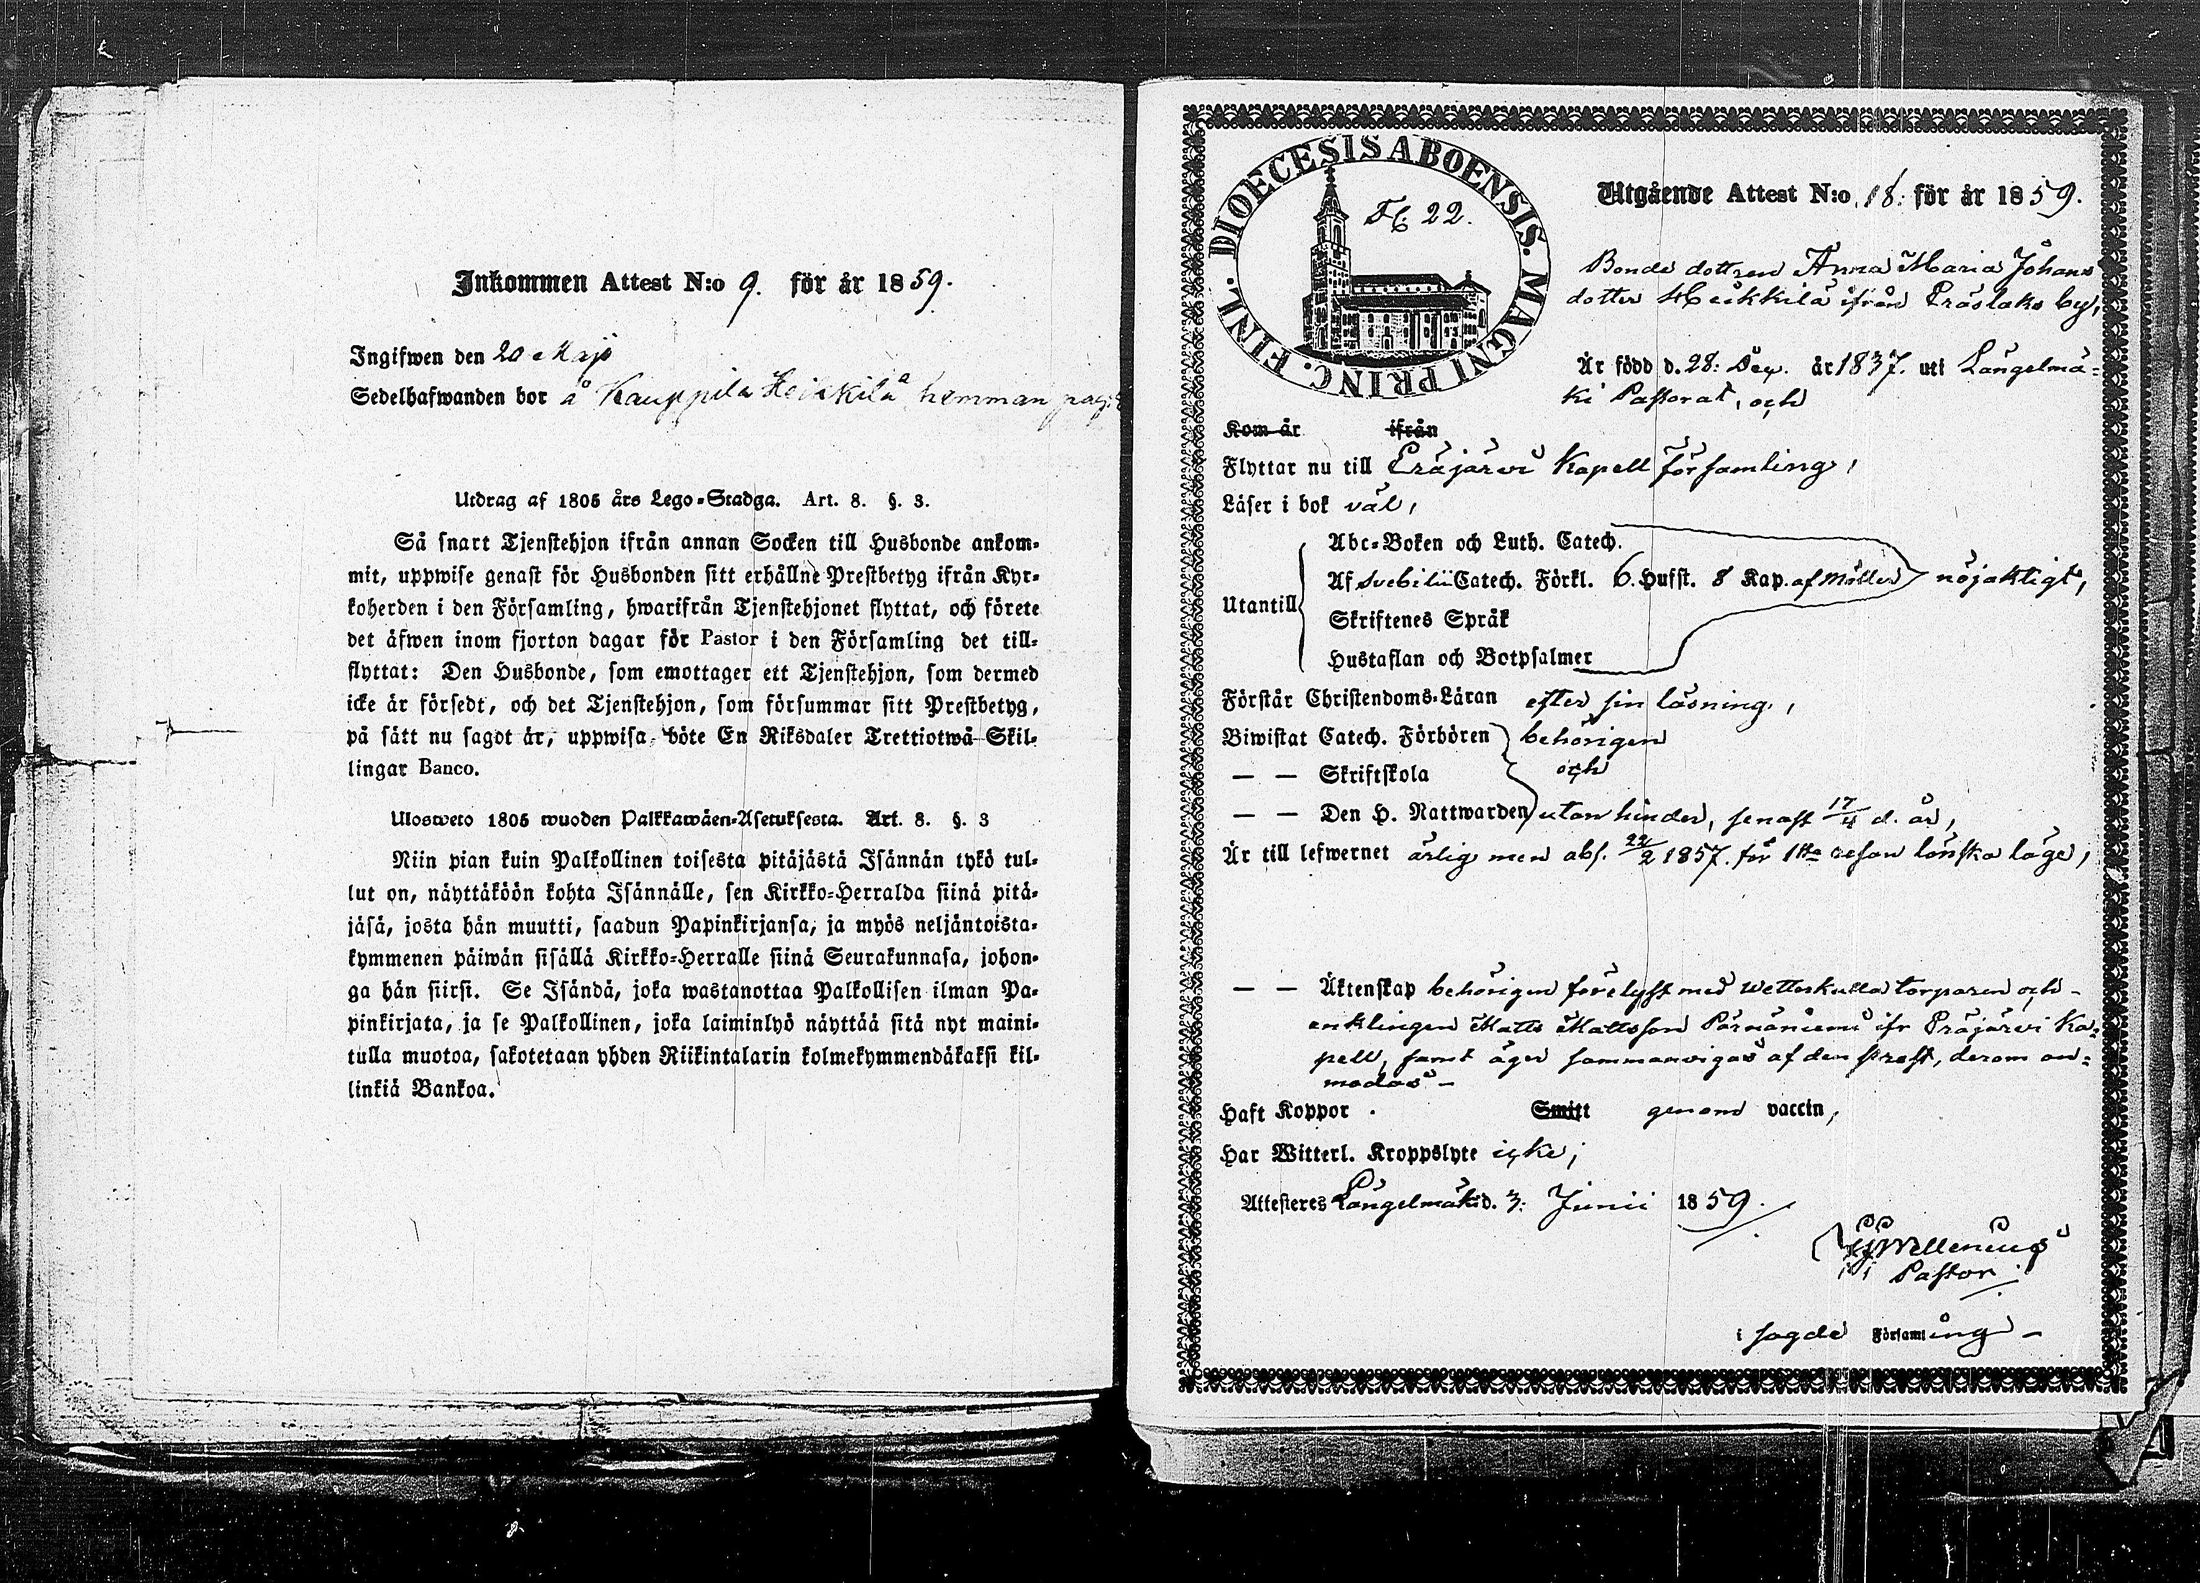 Inkommen Attest N:o 9. för år 1859.
Ingifwen den 20 Maji
Sedelhafwanden bor å Kauppila Heikkilä hemman pag:
Utdrag af 1805 års Lego-Stadga. Art. 8. §. 3.
Så snart Tjenstehjon ifrån annan Socken till Husbonde ankom-
mit, uppwise genast för Husbonden sitt erhållne Prestbetyg ifrån Kyr-
koherden i den Församling, hwarifrån Tjenstehjonet flyttat, och förete
det äfwen inom fjorton dagar för Pastor i den Församling det till-
flyttat: Den Husbonde, som emottager ett Tjenstehjon, som dermed
icke är försedt, och det Tjenstehjon, som försummar sitt Prestbetyg,
på sätt nu sagdt är, uppwisa, böte En Riksdaler Trettiotwå Skil-
lingar Banco.
Ulosweto 1805 wuoden Palkkawäen-Asetuksesta. Art. 8. §. 3
Niin pian kuin Palkollinen toisesta pitäjästä Isännän tykö tul-
lut on, näyttäköön kohta Isännälle, sen Kirkko-Herralda siinä pitä-
jäsä, josta hän muutti, saadun Papinkirjansa, ja myös neljäntoista-
kymmenen päiwän sisällä Kirkko-Herralle siinä Seurakunnasa, johon-
ga hän siirsi. Se Isändä, joka wastanottaa Palkollisen ilman Pa-
pinkirjata, ja se Palkollinen, joka laiminlyö näyttää sitä nyt maini-
tulla muotoa, sakotetaan yhden Riikintalarin kolmekymmendäkaksi kil-
linkiä Bankoa.
DIOECESIS ABOENSIS. MAGNI PRINC. FINL.
22.
Utgående Attest N:o 18: för år 1859.
Bonde dottren Anna Maria Johans
dotter Heikkilä ifrån Eräslaks by,
Är född d. 28: Dec. år 1837. uti Längelmä-
ki Pastorat, och
Kom år ifrån
Flyttar nu till Eräjärvi Kapell församling,
Läser i bok väl,
Abc-Boken och Luth. Catech.
Utantill Af Svebilii Catech. Förkl. 6. Hufst. 8 Kap. af Möller nöjaktigt,
Skriftenes Språk
Hustaflan och Botpsalmer
Förstår Christendoms-Läran efter sin läsning,
Biwistat Catech. Förhören behörigen
— — Skriftskola och
— — Den H. Nattwarden utan hinder, senast 17/4 d. år,
Är till lefwernet ärlig men abs. 22/2 1857. för 1sta resan lönska läge,
— — Äktenskap behörigen förelyst med torparen och
enklingen Matts Mattsson Pärnäniemi ifr Eräjärvi Ka-
pell, samt äger sammanvigas af den prest, derom an-
modas —
Haft Koppor. Smitt genom vaccin,
Har Witterl. Kroppslyte icke;
Attesteres Längelmäki d. 3: Junii 1859.
Wellenius
Pastor
i sagde Församling —